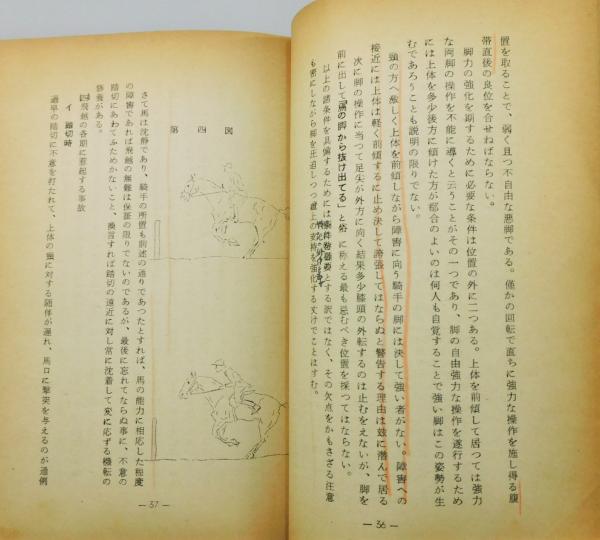 置を取ることで、弱く且つ不自由な悪脚である。僅かの回転で直ちに強力な操作を施し得る腹
帯直後の良位を合せねばならない。
脚力の強化を期するために必要な条件は位置の外に二つある。上体を前傾して居つては強力
な両脚の操作を不能に導くと云うことがその一つであり、脚の自由強力な操作を遂行するため
には上体を多少後方に傾けた方が都合のよいのは何人も自覚することで強い脚はこの姿勢が生
むであろうことも説明の限りでない。
頸の方へ激しく上体を前傾しながら障害に向う騎手の脚には決して強い者がない。障害への
接近には上体は軽く前傾するに止め決して誇張してはならぬと警告する理由は玆に潜んで居る
次に脚の操作に当つて足尖が外方に向く結果多少膝頭の外転するのは止むをえないが、脚を
前に出して「馬の脚から抜け出てる」と俗に称える最も忌むべき位置を採つてはならない。
以上の諸条件を具備するためには
を必要とする訳ではなく、その欠点をかもさざる注意
も密にしながら脚を圧迫しつつ
上の支持を強化する丈けでことはすむ。
— 36 —
第四図
さて馬は沈静であり、騎手の所置も前述の通りであつたとすれば、馬の能力に相応した程度
の障害であれば飛越の無難は保証の限りでないのであるが、最後に忘れてならぬ事に、不意の
踏切にあわてふためかないこと、換言すれば踏切の遠近に対し常に沈着して変に応ずる機転の
修養がある。
四 飛越の各期に惹起する事故
イ 踏切時
過早の踏切に不意を打たれて、上体の頸に対する随伴が遅れ、馬口に撃突を与えるのが通例
— 37 —